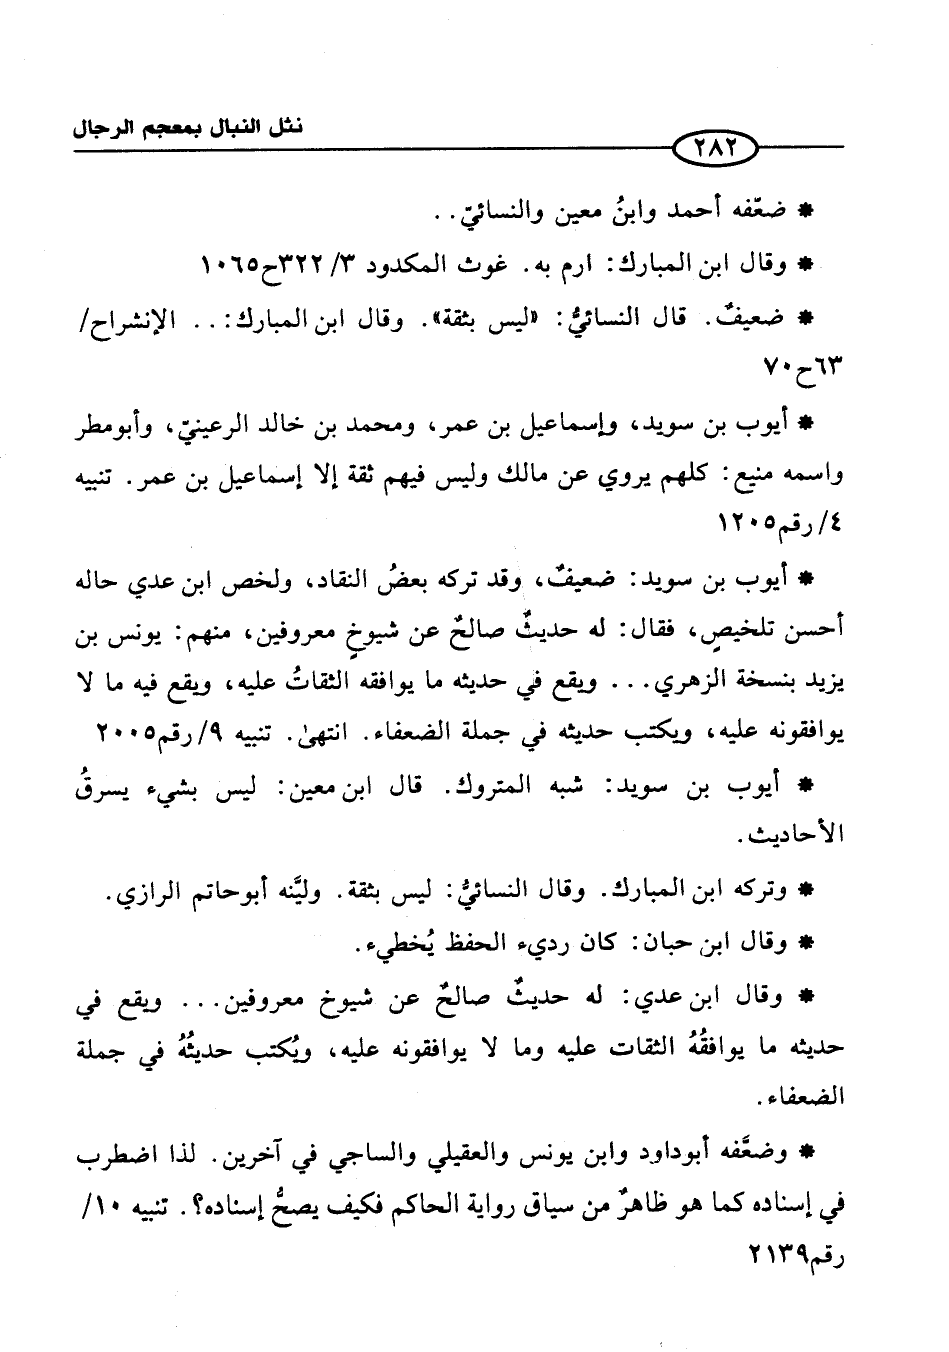 نثل النبال بمعجم الرجال
٢٨٢
* ضعّفه أحمد وابنُ معين والنسائيّ..
* وقال ابن المبارك: ارم به. غوث المكدود ٣/ ٣٢٢ح١٠٦٥
* ضعيفٌ. قال النسائيُّ: «ليس بثقة». وقال ابن المبارك:.. الإنشراح/
٦٣ح٧٠
* أيوب بن سويد، وإسماعيل بن عمر، ومحمد بن خالد الرعينيّ، وأبومطر
واسمه منيع: كلهم يروي عن مالك وليس فيهم ثقة إلا إسماعيل بن عمر. تنبيه
٤/ رقم١٢٠٥
* أيوب بن سويد: ضعيفٌ، وقد تركه بعضُ النقاد، ولخص ابن عدي حاله
أحسن تلخيصٍ، فقال: له حديثٌ صالحٌ عن شيوخٍ معروفين، منهم: يونس بن
يزيد بنسخة الزهري... ويقع في حديثه ما يوافقه الثقاتُ عليه، ويقع فيه ما لا
يوافقونه عليه، ويكتب حديثه في جملة الضعفاء. انتهىٰ. تنبيه ٩/ رقم٢٠٠٥
* أيوب بن سويد: شبه المتروك. قال ابن معين: ليس بشيء يسرقُ
الأحاديث.
* وتركه ابن المبارك. وقال النسائيُّ: ليس بثقة. وليَّنه أبوحاتم الرازي.
* وقال ابن حبان: كان رديء الحفظ يُخطيء.
* وقال ابن عدي: له حديثٌ صالحٌ عن شيوخ معروفين... ويقع في
حديثه ما يوافقُهُ الثقات عليه وما لا يوافقونه عليه، ويُكتب حديثُهُ في جملة
الضعفاء.
* وضعَّفه أبوداود وابن يونس والعقيلي والساجي في آخرين. لذا اضطرب
في إسناده كما هو ظاهرٌ من سياق رواية الحاكم فكيف يصحُّ إسناده؟. تنبيه ١٠/
رقم٢١٣٩